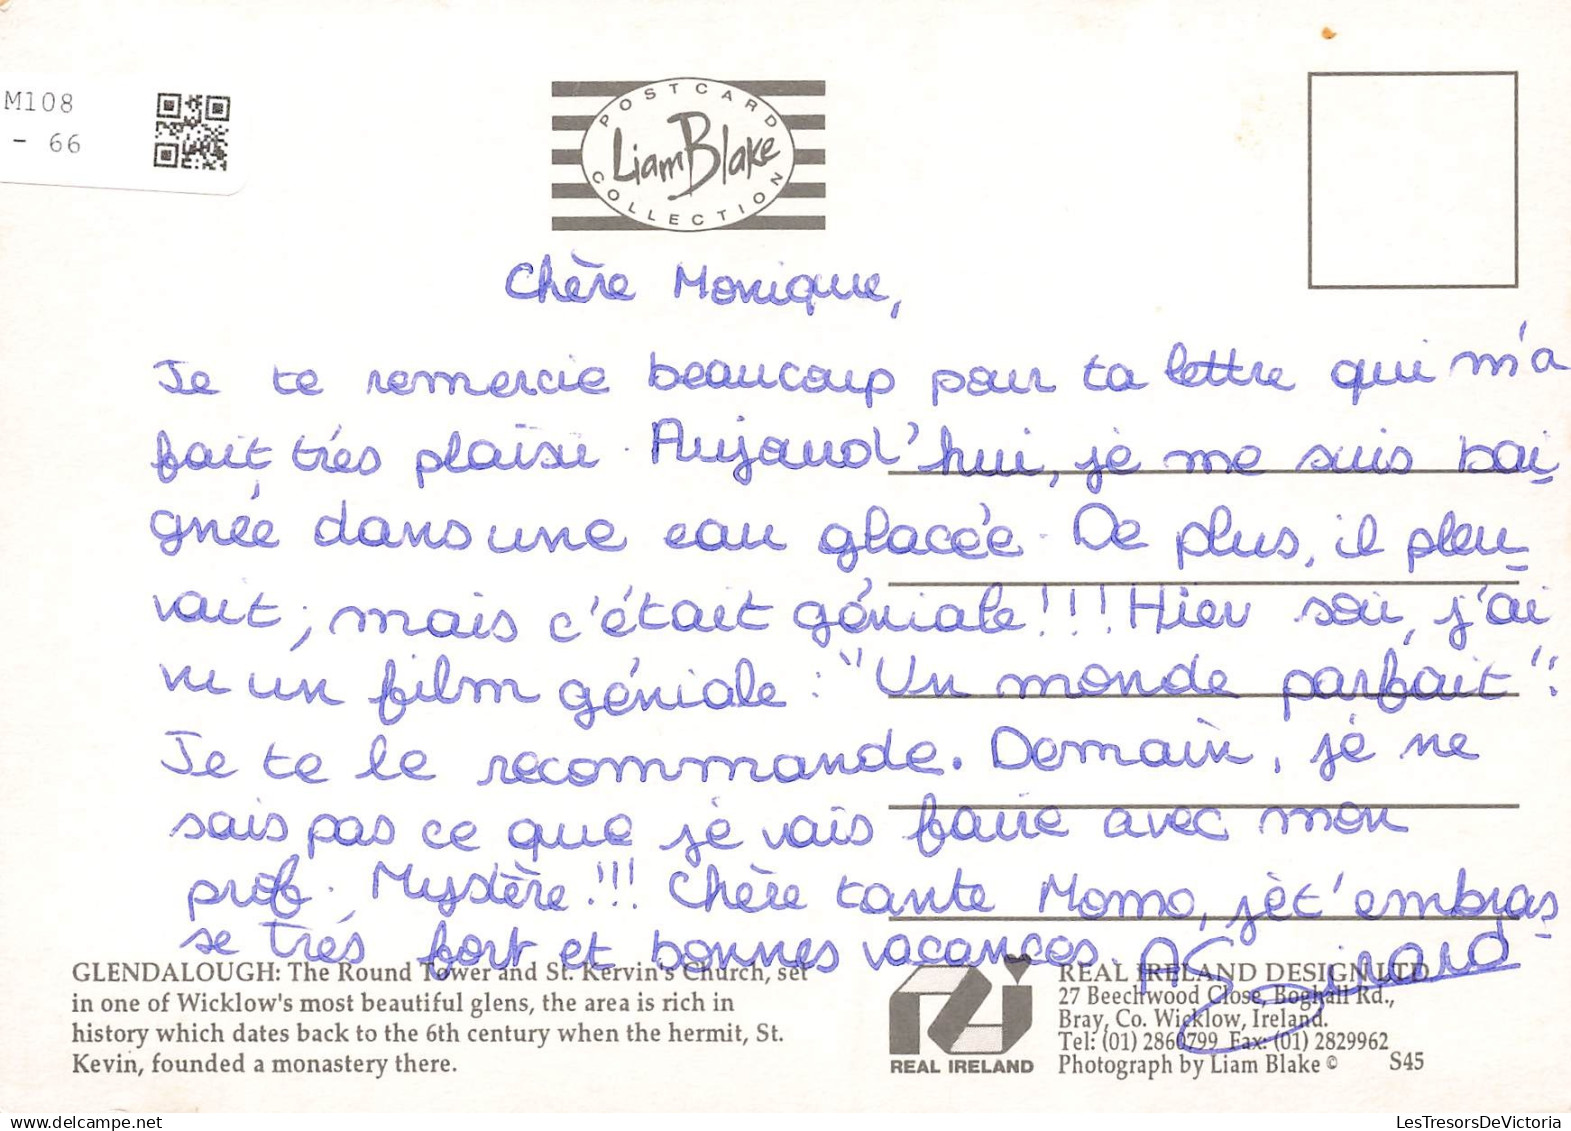 M108
- 66
POSTCARD
Liam Blake
COLLECTION
Chère Monique,
Je te remercie beaucoup pour ta lettre qui m'a
fait très plaisir. Aujourd'hui, je me suis bai
gnée dans une eau glacée. De plus, il pleu
vait, mais c'était géniale!!! Hier soir, j'ai
vu un film géniale : "Un monde parfait".
Je te le recommande. Demain, je ne
sais pas ce que je vais faire avec mon
prof. Mystère!!! Chère tante Momo, je t'embras
se très fort et bonnes vacances.
GLENDALOUGH: The Round Tower and St. Kervin's Church, set
in one of Wicklow's most beautiful glens, the area is rich in
history which dates back to the 6th century when the hermit, St.
Kevin, founded a monastery there.
REAL IRELAND
REAL IRELAND DESIGN LTD
27 Beechwood Close, Boghall Rd.,
Bray, Co. Wicklow, Ireland.
Tel: (01) 2860799 Fax: (01) 2829962
Photograph by Liam Blake © S45
LesTresorsDeVictoria